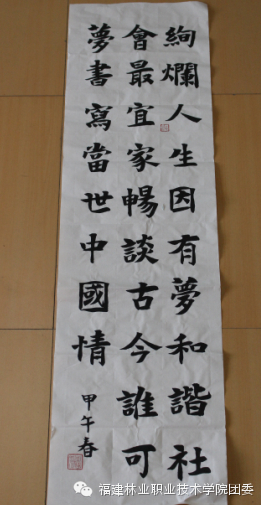 絢爛人生因有夢和諧社
會最宜家暢談古今誰可
夢書寫當世中國情
甲午春
福建林业职业技术学院团委